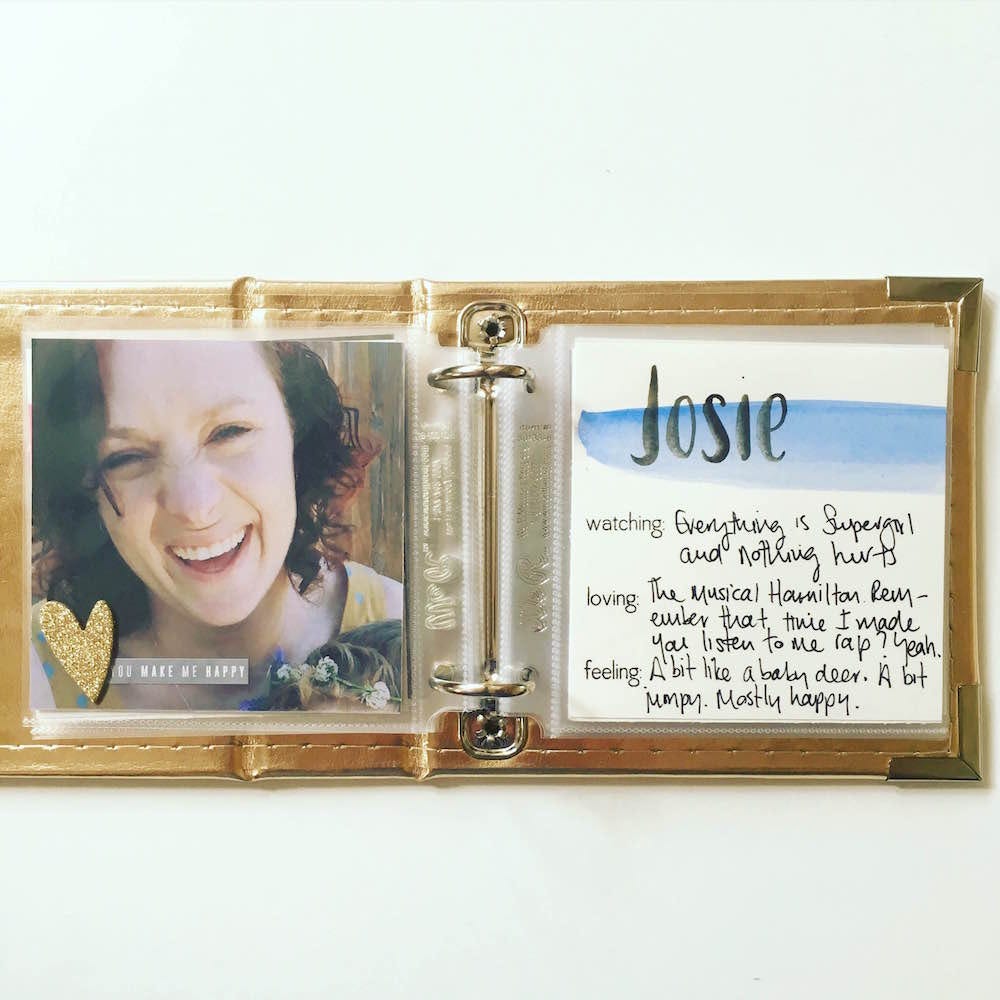 YOU MAKE ME HAPPY
Josie
watching: Everything is Supergirl
and nothing hurts
loving: The Musical Hamilton. Rem-
ember that time I made
you listen to me rap? Yeah.
feeling: A bit like a baby deer. A bit
jumpy. Mostly happy.